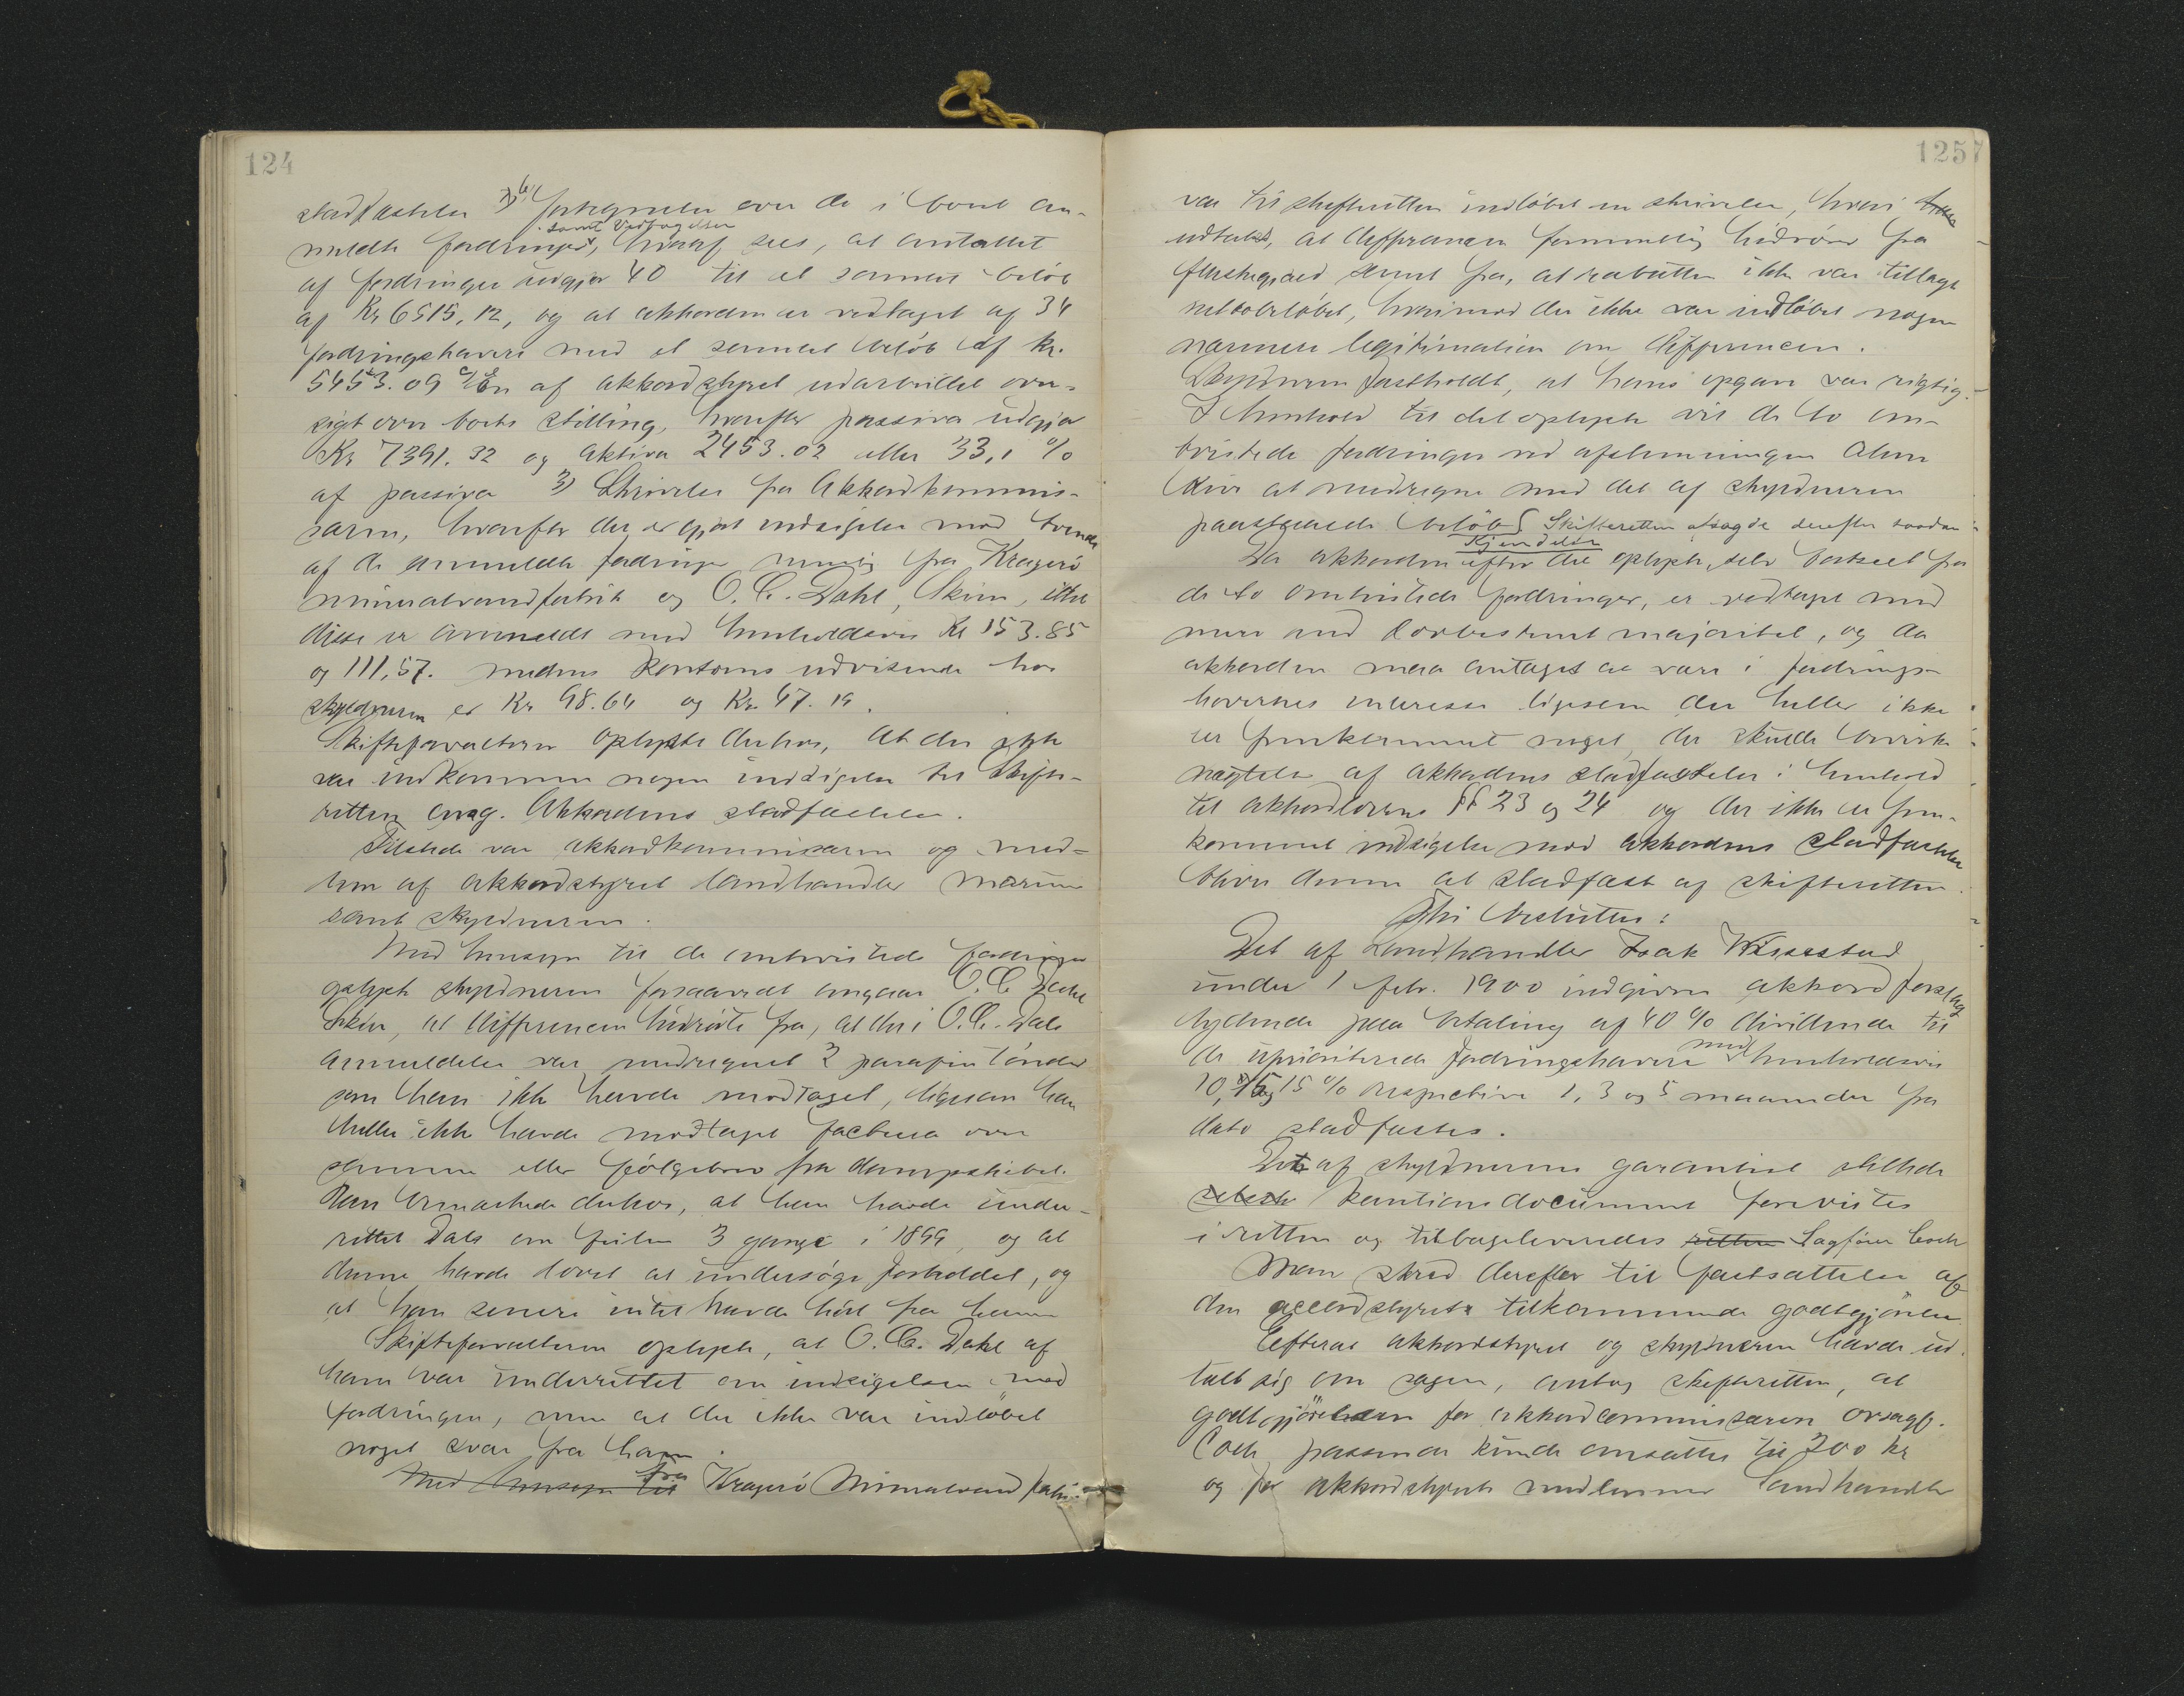 124
stadfæstelse 2) b) fortegnelse over de i boet an-
samt Vedtagelser
meldte fordringer, hvoraf sees, at antallet
af fordringer udgjør 40 til et samlet beløb
af Kr 6515,12, og at akkorden er vedtaget af 34
fordringshavere med et samlet beløb af kr.
5453.09 c) En af akkordstyret udarbeidet over-
sigt over boets stilling, hvorefter passiva udgjør
Kr 7391.32 og aktiva 2453.02 eller 33,1 %
af passiva 3) Skrivelse fra Akkordkommis-
særen, hvorefter der er gjort indsigelse mod tvende
af de anmeldte fordringer nemlig fra Kragerø
mineralvandfabrik og O. C. Dahl, Skien, idet
disse er anmeldt med henholdsvis Kr 153.85
og 111,57. medens kontoens udvisende hos
skyldneren er Kr 98.64 og Kr. 47.19.
Skifteforvalteren oplyste derhos, at der ikke
var indkommen nogen indsigelse til Skifte-
retten ang. Akkordens stadfæstelse.
Tilstede var akkordkommissæren og med-
lem af akkordstyret landhandler
samt skyldneren.
Med hensyn til de omtvistede fordringer
oplyste skyldneren forsaavidt angaar O. C. Dahl
Skien, at differencen hidrørte fra, at der i O. C. Dals
anmeldelse var medregnet 2 parafin tønder
som han ikke havde modtaget, ligesom han
heller ikke havde modtaget factura over
samme eller følgebrev fra dampskibet.
Han bemærkede derhos, at han havde under-
rettet Dals om feilen 3 gange i 1899, og at
denne havde lovet at undersøge forholdet, og
at han senere intet havde hørt fra ham
Skifteforvalteren oplyste, at O. C. Dahl af
ham var underrettet om indsigelsen mod
fordringen, men at der ikke var indløbet
noget svar fra ham.
Med hensyn til fra Kragerø Mineralvandfabrik
1257
var til skifteretten indløbet en skrivelse, hvori
udtales, at differencen formentlig hidrører fra
flaskegjæld samt fra, at rabatten ikke var tillagt
nettobeløbet, hvorimod der ikke var indløbet nogen
nærmere legitimation om differencen.
Skyldneren fastholdt, at hans opgave var rigtig.
I henhold til det oplyste vil de to om-
tvistede fordringer ved afstemningen alene
blive at medregne med det af skyldneren
paastaaede beløb. Skifteretten afsagde derefter saadan
Kjendelse
Da akkorden efter det oplyste, selv bortseet fra
de to omtvistede fordringer, er vedtaget med
mere end lovbestemt majoritet, og da
akkorden maa antages at være i fordrings-
havernes interesse ligesom der heller ikke
er fremkommet noget, der skulde bevirke
nægtelse af akkordens stadfæstelse i henhold
til akkordlovens §§ 23 og 24 og der ikke er frem-
kommet indsigelse mod akkordens stadfæstelse
bliver denne at stadfæste af skifteretten.
Thi besluttes:
Det af Landhandler Isak
under 1 febr. 1900 indgivne akkordforslag
lydende paa betaling af 40 % dividende til
de uprioriterede fordringshavere med henholdsvis
10, 15 og 15 % respektive 1, 3 og 5 maaneder fra
dato stadfæstes.
Det af skyldnerens garantist stillede
kautionsdocument forevistes
i retten og tilbageleveredes retten Sagfører Coch
Man skred derefter til fastsættelse af
den accordstyret tilkommende godtgjørelse
Efterat akkordstyret og skyldneren havde ud-
talt sig om sagen, antog skifteretten, at
godtgjørelsen for akkordcommissæren orsagf.
Coch passende kunde ansættes til 200 kr
og for akkordstyrets medlemmer landhandler